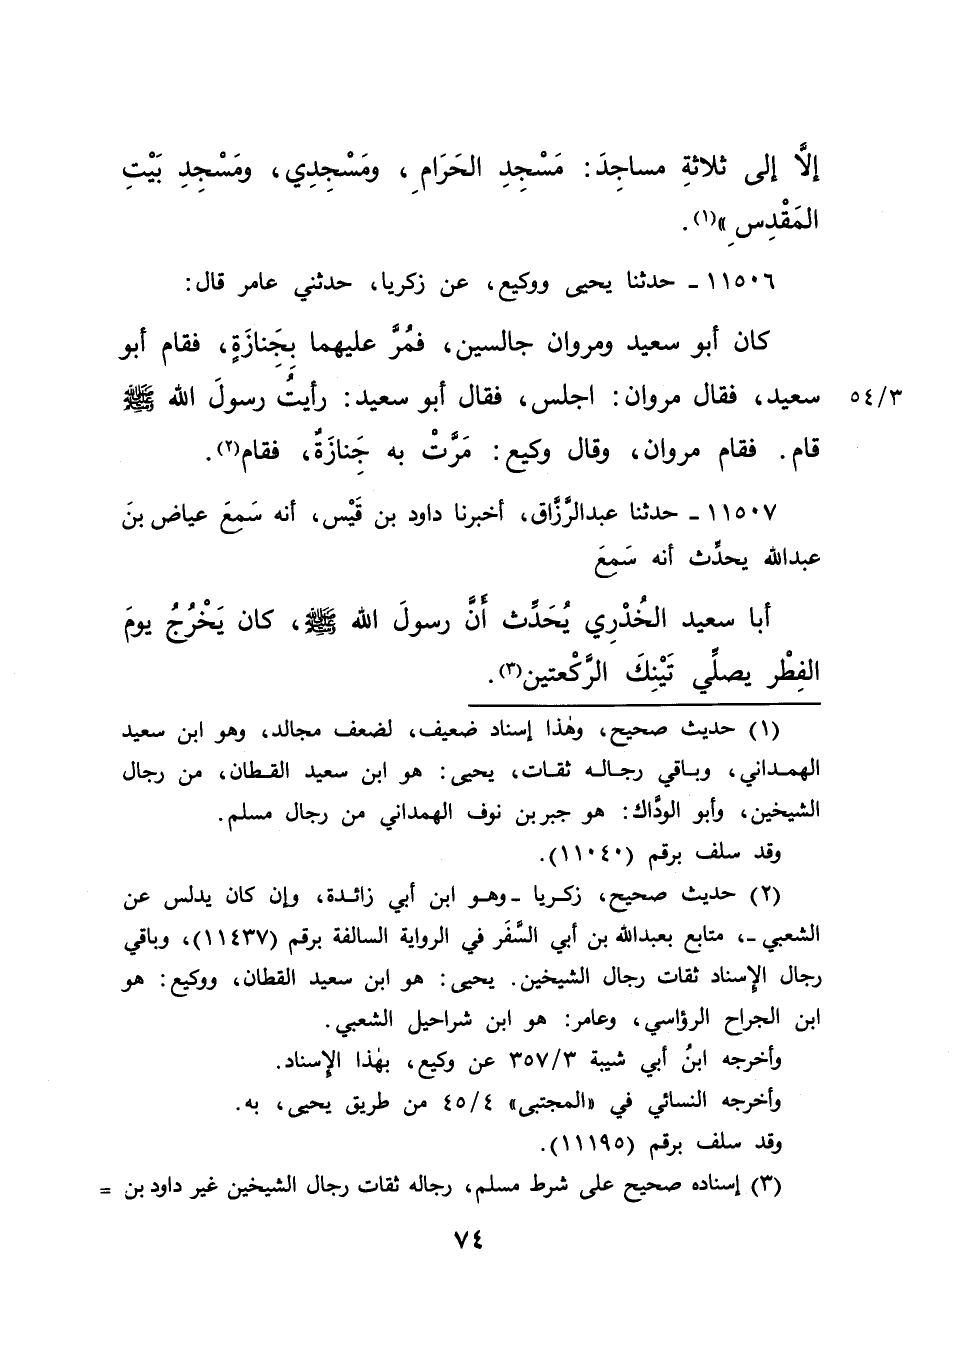 إلَّا إلى ثلاثةِ مساجِدَ: مَسْجِدِ الحَرَامِ، ومَسْجِدِي، ومَسْجِدِ بَيْتِ
المَقْدِسِ»(١).
١١٥٠٦ ـ حدثنا يحيى ووكيع، عن زكريا، حدثني عامر قال:
كان أبو سعيد ومروان جالسين، فمُرَّ عليهما بِجَنازَةٍ، فقام أبو
سعيد، فقال مروان: اجلس، فقال أبو سعيد: رأيتُ رسولَ الله ﷺ ٥٤/٣
قام. فقام مروان، وقال وكيع: مَرَّتْ به جَنازَةٌ، فقام(٢).
١١٥٠٧ ـ حدثنا عبدالرَّزَّاق، أخبرنا داود بن قَيْس، أنه سَمِعَ عياض بنَ
عبدالله يحدِّث أنه سَمِعَ
أبا سعيد الخُدْرِي يُحَدِّث أنَّ رسولَ الله ﷺ، كان يَخْرُجُ يومَ
الفِطْر يصلِّي تَيْنِكَ الرَّكْعتين(٣).
(١) حديث صحيح، وهٰذا إسناد ضعيف، لضعف مجالد، وهو ابن سعيد
الهمداني، وباقي رجاله ثقات، يحيى: هو ابن سعيد القطان، من رجال
الشيخين، وأبو الودَّاك: هو جبر بن نوف الهمداني من رجال مسلم.
وقد سلف برقم (١١٠٤٠).
(٢) حديث صحيح، زكريا ـ وهو ابن أبي زائدة، وإن كان يدلس عن
الشعبي ـ، متابع بعبدالله بن أبي السَّفَر في الرواية السالفة برقم (١١٤٣٧)، وباقي
رجال الإسناد ثقات رجال الشيخين. يحيى: هو ابن سعيد القطان، ووكيع: هو
ابن الجراح الرؤاسي، وعامر: هو ابن شراحيل الشعبي.
وأخرجه ابنُ أبي شيبة ٣٥٧/٣ عن وكيع، بهٰذا الإسناد.
وأخرجه النسائي في «المجتبى» ٤٥/٤ من طريق يحيى، به.
وقد سلف برقم (١١١٩٥).
(٣) إسناده صحيح على شرط مسلم، رجاله ثقات رجال الشيخين غير داود بن =
٧٤